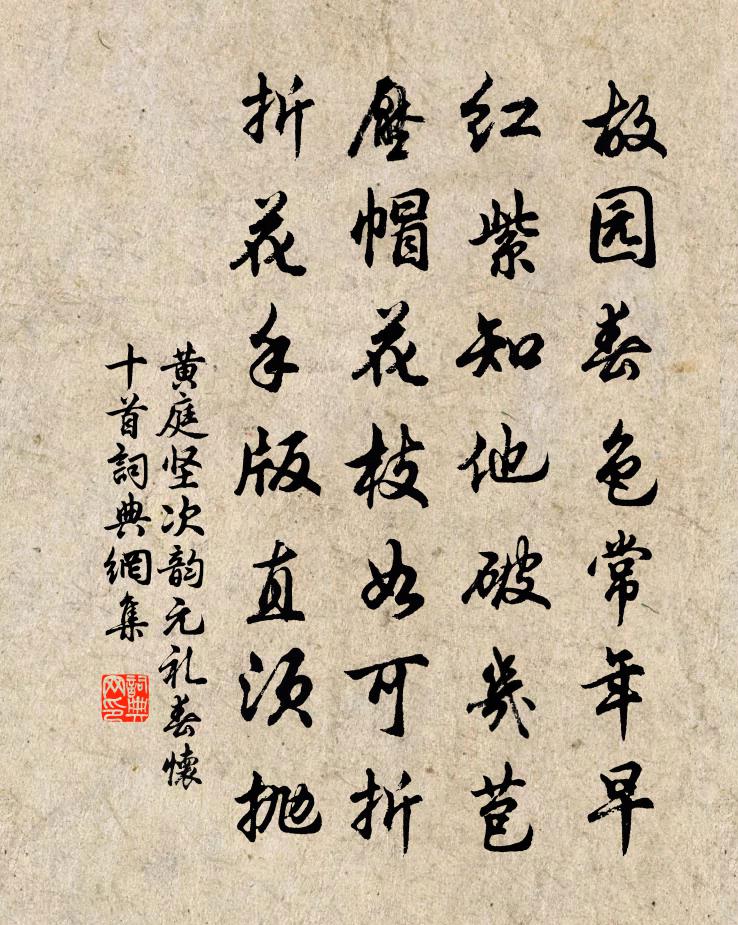 故园春色常年早
红紫知他破几苞
压帽花枝如可折
折花手版直须抛
黄庭坚次韵元礼春怀
十首詞典網集
詞典
网印